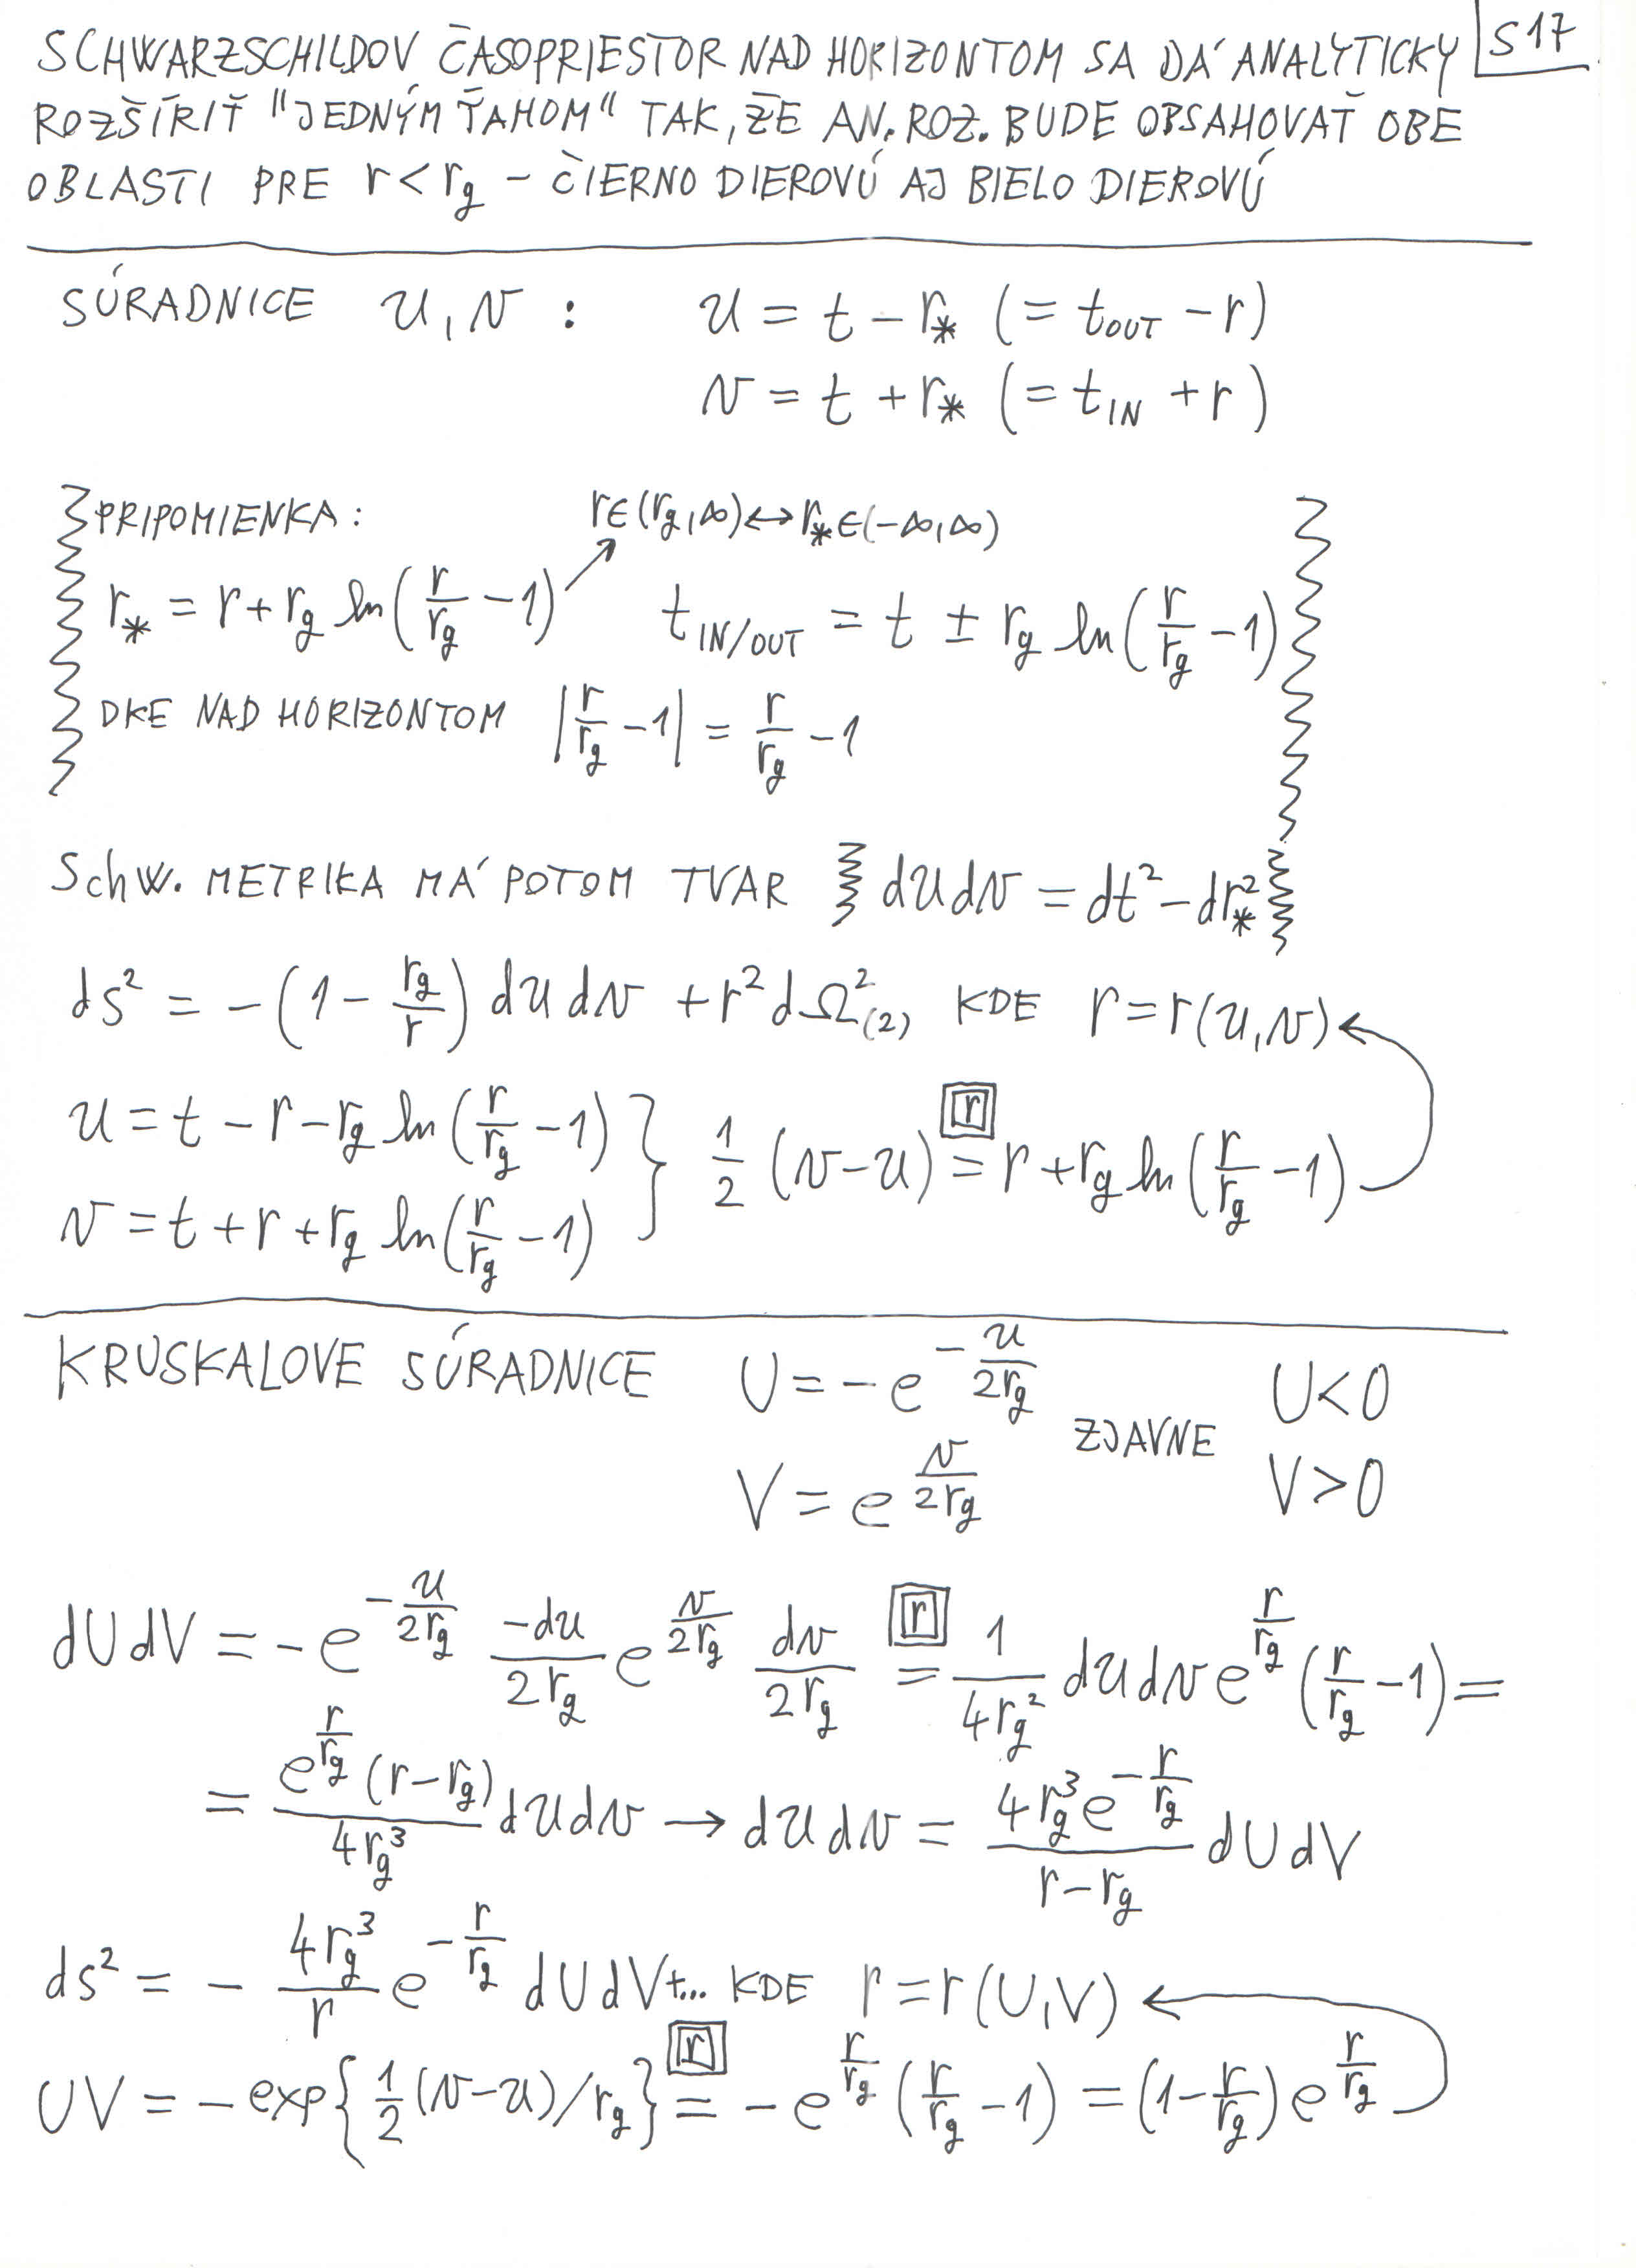 SCHWARZSCHILDOV ČASOPRIESTOR NAD HORIZONTOM SA DÁ ANALYTICKY S17
ROZŠÍRIŤ "JEDNÝM ŤAHOM" TAK, ŽE AN. ROZ. BUDE OBSAHOVAŤ OBE
OBLASTI PRE r < r_g – ČIERNO DIEROVÚ AJ BIELO DIEROVÚ
SÚRADNICE u, v : u = t – r_* (= t_OUT – r)
v = t + r_* (= t_IN + r)
PRIPOMIENKA: r∈(r_g,∞) ↔ r_*∈(-∞,∞)
r_* = r + r_g ln(r/r_g – 1) t_IN/OUT = t ± r_g ln(r/r_g – 1)
DKE NAD HORIZONTOM |r/r_g – 1| = r/r_g – 1
SchW. METRIKA MÁ POTOM TVAR du dv = dt² – dr_*²
ds² = – (1 – r_g/r) du dv + r² dΩ²_(2) KDE r = r(u,v)
u = t – r – r_g ln(r/r_g – 1) } ½ (v – u) [r] = r + r_g ln(r/r_g – 1)
v = t + r + r_g ln(r/r_g – 1)
KRUSKALOVE SÚRADNICE U = – e^(–u/2r_g) ZJAVNE U < 0
V = e^(v/2r_g) V > 0
dU dV = – e^(–u/2r_g) (–du/2r_g) e^(v/2r_g) dv/2r_g [r] = 1/4r_g² du dv e^(r/r_g) (r/r_g – 1) =
= e^(r/r_g) (r – r_g)/4r_g³ du dv → du dv = 4r_g³ e^(–r/r_g)/(r – r_g) dU dV
ds² = – 4r_g³/r e^(–r/r_g) dU dV + ... KDE r = r(U,V)
UV = – exp{½ (v – u)/r_g} [r] = – e^(r/r_g) (r/r_g – 1) = (1 – r/r_g) e^(r/r_g)